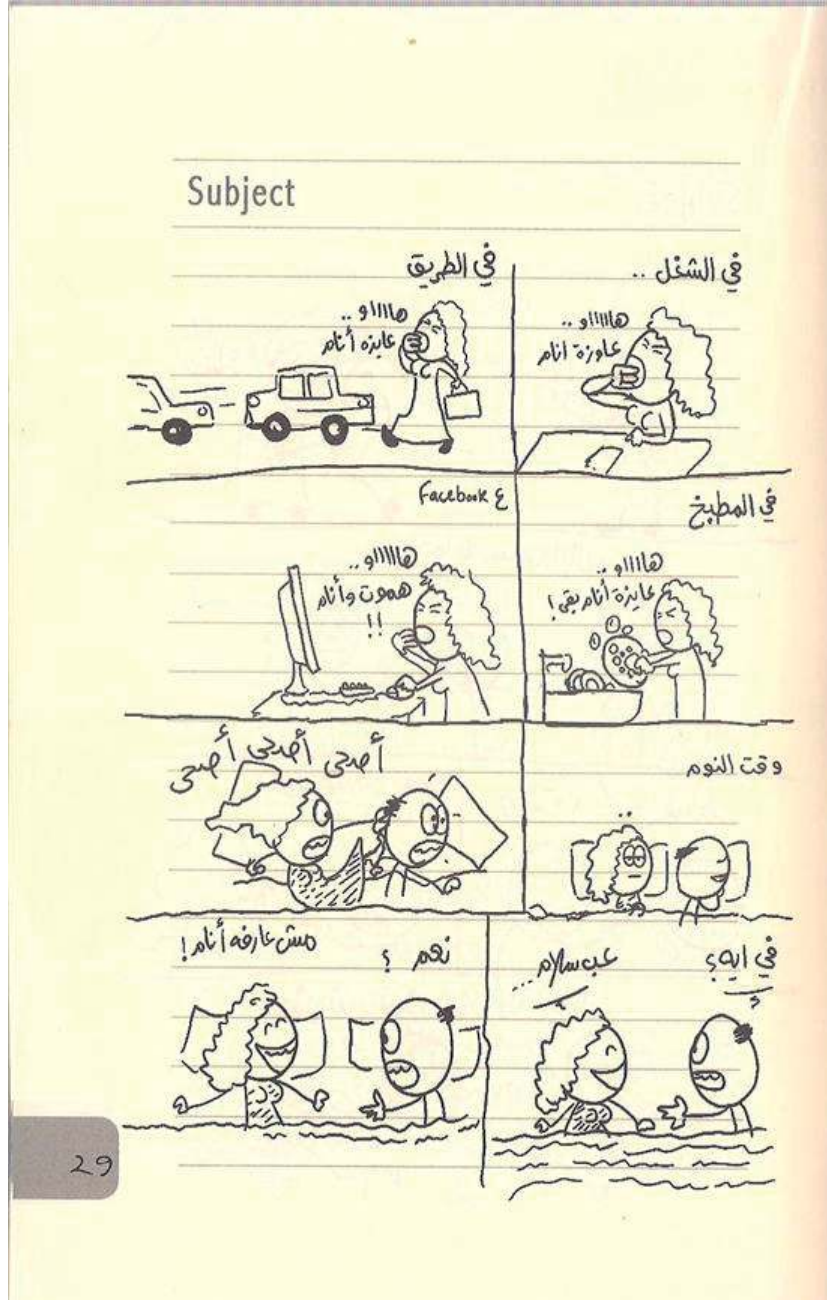 Subject
في الشغل ..
هااااو ..
عاوزة انام
في الطريق
هااااو ..
عايزه أنام
في المطبخ
هااااو ..
عايزة أنام بقى !
ع Facebook
هااااو ..
هموت وأنام
!!
وقت النوم
أصحى أصحى أصحى
في ايه ؟
عبسلام ...
نعم ؟
مش عارفه أنام !
29